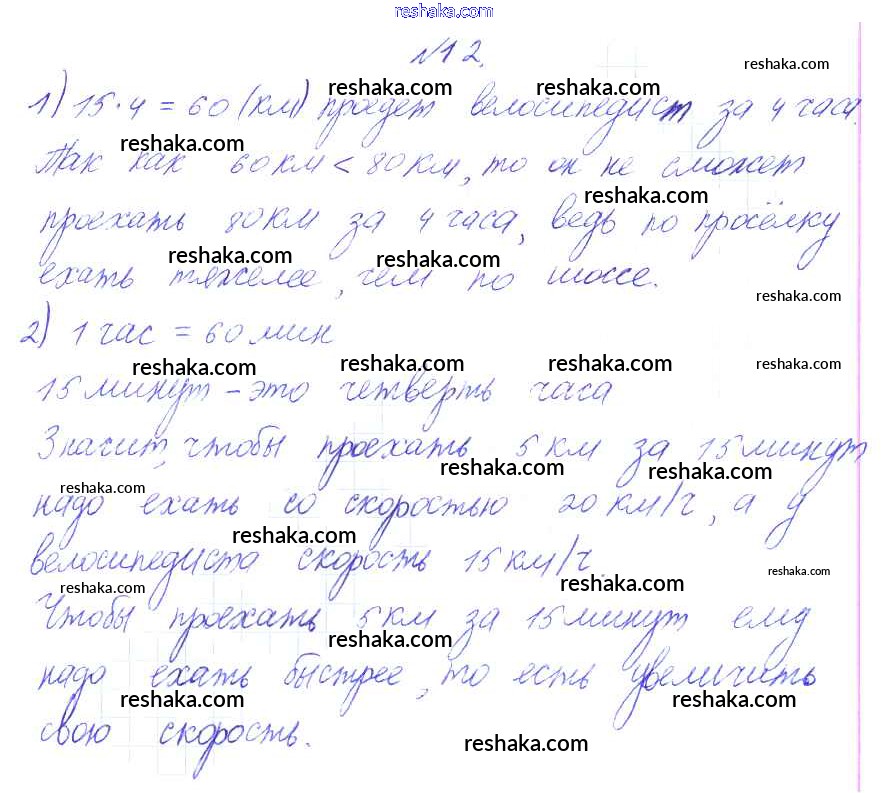 reshaka.com
№12.
reshaka.com
reshaka.com
reshaka.com
1) 15·4 = 60 (км) проедет велосипедист за 4 часа.
reshaka.com
Так как 60 км < 80 км, то он не сможет
reshaka.com
проехать 80 км за 4 часа, ведь по просёлку
reshaka.com
reshaka.com
ехать тяжелее, чем по шоссе.
reshaka.com
2) 1 час = 60 мин
reshaka.com
reshaka.com
reshaka.com
reshaka.com
15 минут – это четверть часа
Значит, чтобы проехать 5 км за 15 минут
reshaka.com
reshaka.com
reshaka.com
надо ехать со скоростью 20 км/ч, а у
reshaka.com
велосипедиста скорость 15 км/ч.
reshaka.com
reshaka.com
reshaka.com
Чтобы проехать 5 км за 15 минут ему
reshaka.com
надо ехать быстрее, то есть увеличить
reshaka.com
reshaka.com
свою скорость.
reshaka.com